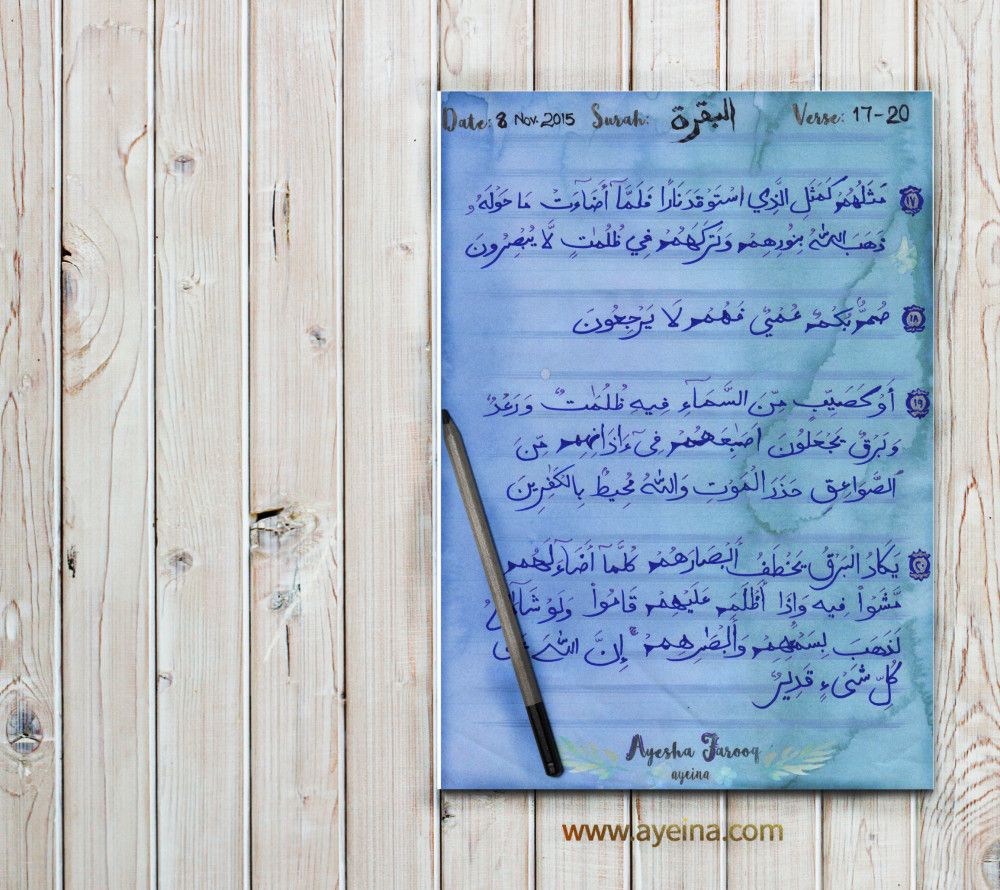 Date: 8 Nov. 2015 Surah: البقرة Verse: 17-20
١٧ مَثَلُهُمْ كَمَثَلِ الَّذِي اسْتَوْقَدَ نَارًا فَلَمَّآ أَضَآءَتْ مَا حَوْلَهُۥ
ذَهَبَ اللَّهُ بِنُورِهِمْ وَتَرَكَهُمْ فِي ظُلُمٰتٍ لَّا يُبْصِرُونَ
١٨ صُمٌّۢ بُكْمٌ عُمْيٌ فَهُمْ لَا يَرْجِعُونَ
١٩ أَوْ كَصَيِّبٍ مِّنَ السَّمَآءِ فِيهِ ظُلُمٰتٌ وَرَعْدٌ
وَبَرْقٌ يَجْعَلُونَ اَصٰبِعَهُمْ فِىٓ ءَاذَانِهِم مِّنَ
الصَّوَاعِقِ حَذَرَ الْمَوْتِ وَاللَّهُ مُحِيطٌ بِالْكٰفِرِينَ
٢٠ يَكَادُ الْبَرْقُ يَخْطَفُ أَبْصَارَهُمْ كُلَّمَآ أَضَآءَ لَهُم
مَّشَوْا۟ فِيهِ وَإِذَا أَظْلَمَ عَلَيْهِمْ قَامُوا۟ وَلَوْ شَآءَ
لَذَهَبَ بِسَمْعِهِمْ وَأَبْصٰرِهِمْ ۚ إِنَّ اللَّهَ
كُلِّ شَىْءٍ قَدِيرٌ
Ayesha Farooq
ayeina
www.ayeina.com